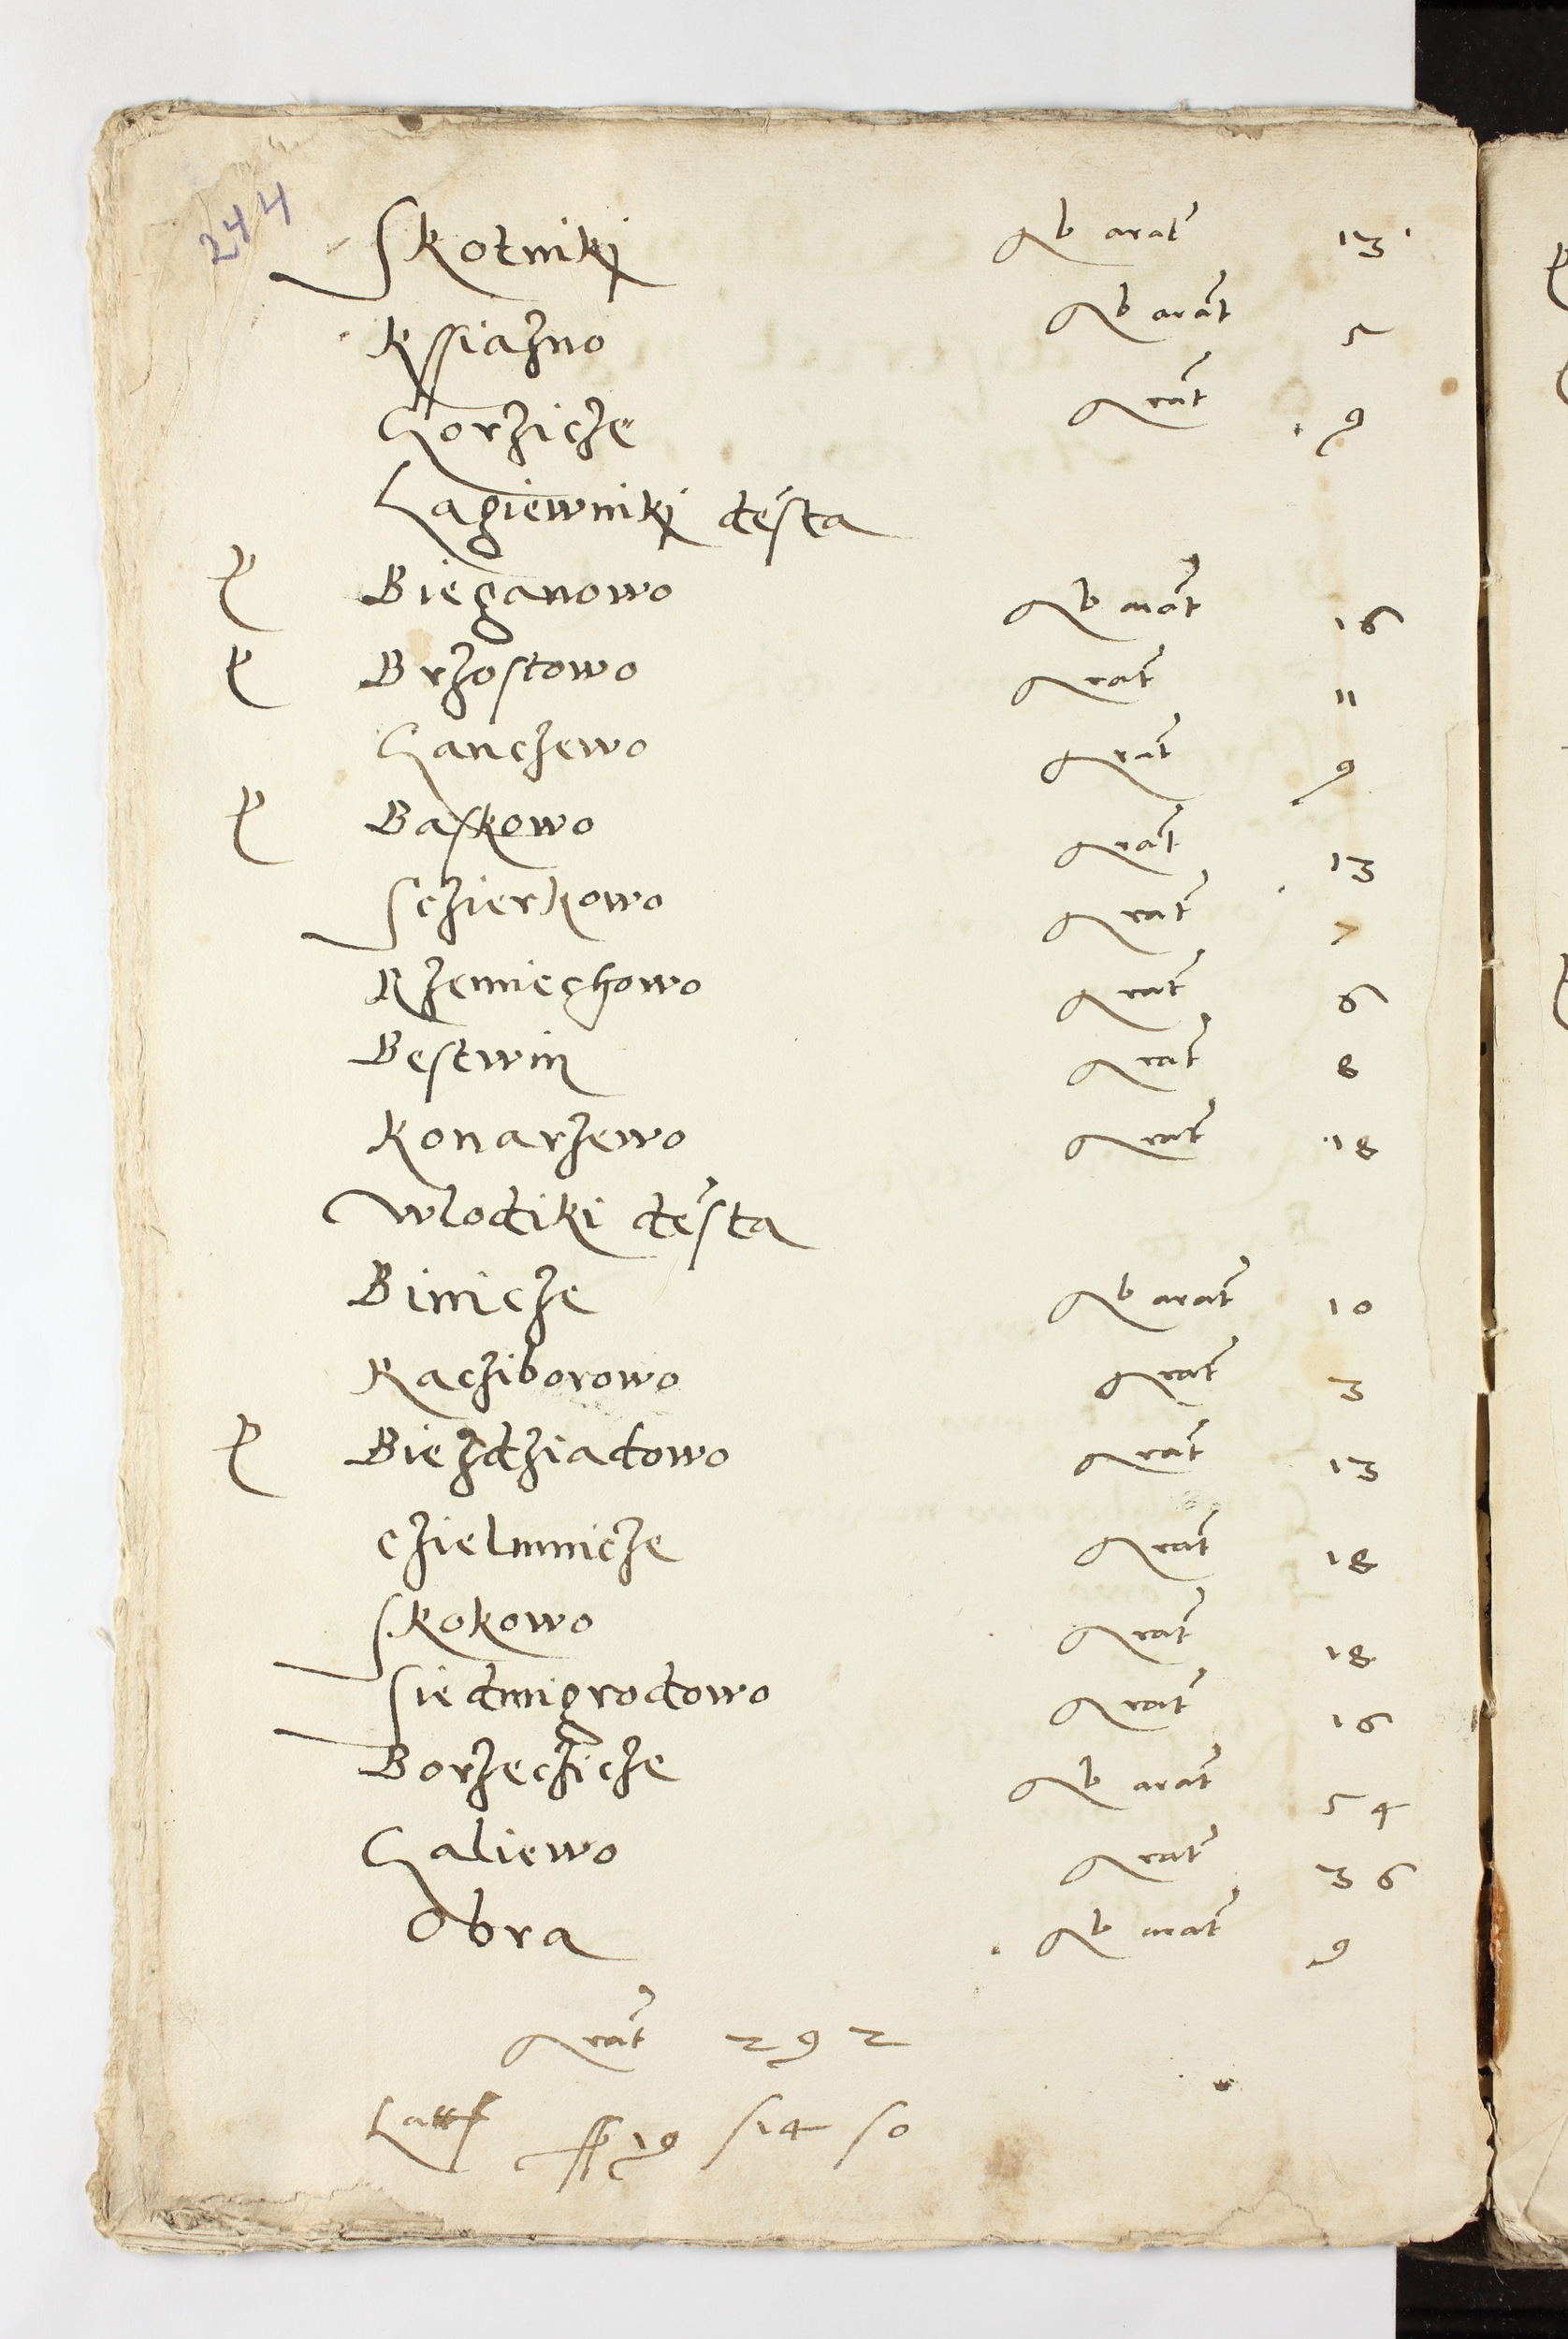 244
Skotniki Ab arat 13
Kssiazno Ab arat 5
Gorzicze Arat 9
Lagiewniki desta
Bieganowo Ab arat 16
Brzostowo Arat 11
Ganczewo Arat 9
Baskowo Arat 13
Sczierkowo Arat 7
Rzemiechowo Arat 6
Bestwin Arat 8
Konarzewo Arat 18
Wlodiki desta
Binicze Ab arat 10
Racziborowo Arat 3
Biezdziadowo Arat 13
Czielmnicze Arat 18
Skokowo Arat 18
Siedmigrodowo Arat 16
Borzeczicze Ab arat 54
Galiewo Arat 36
Obra Ab arat 9
Arat 292
19 / 14 / 0